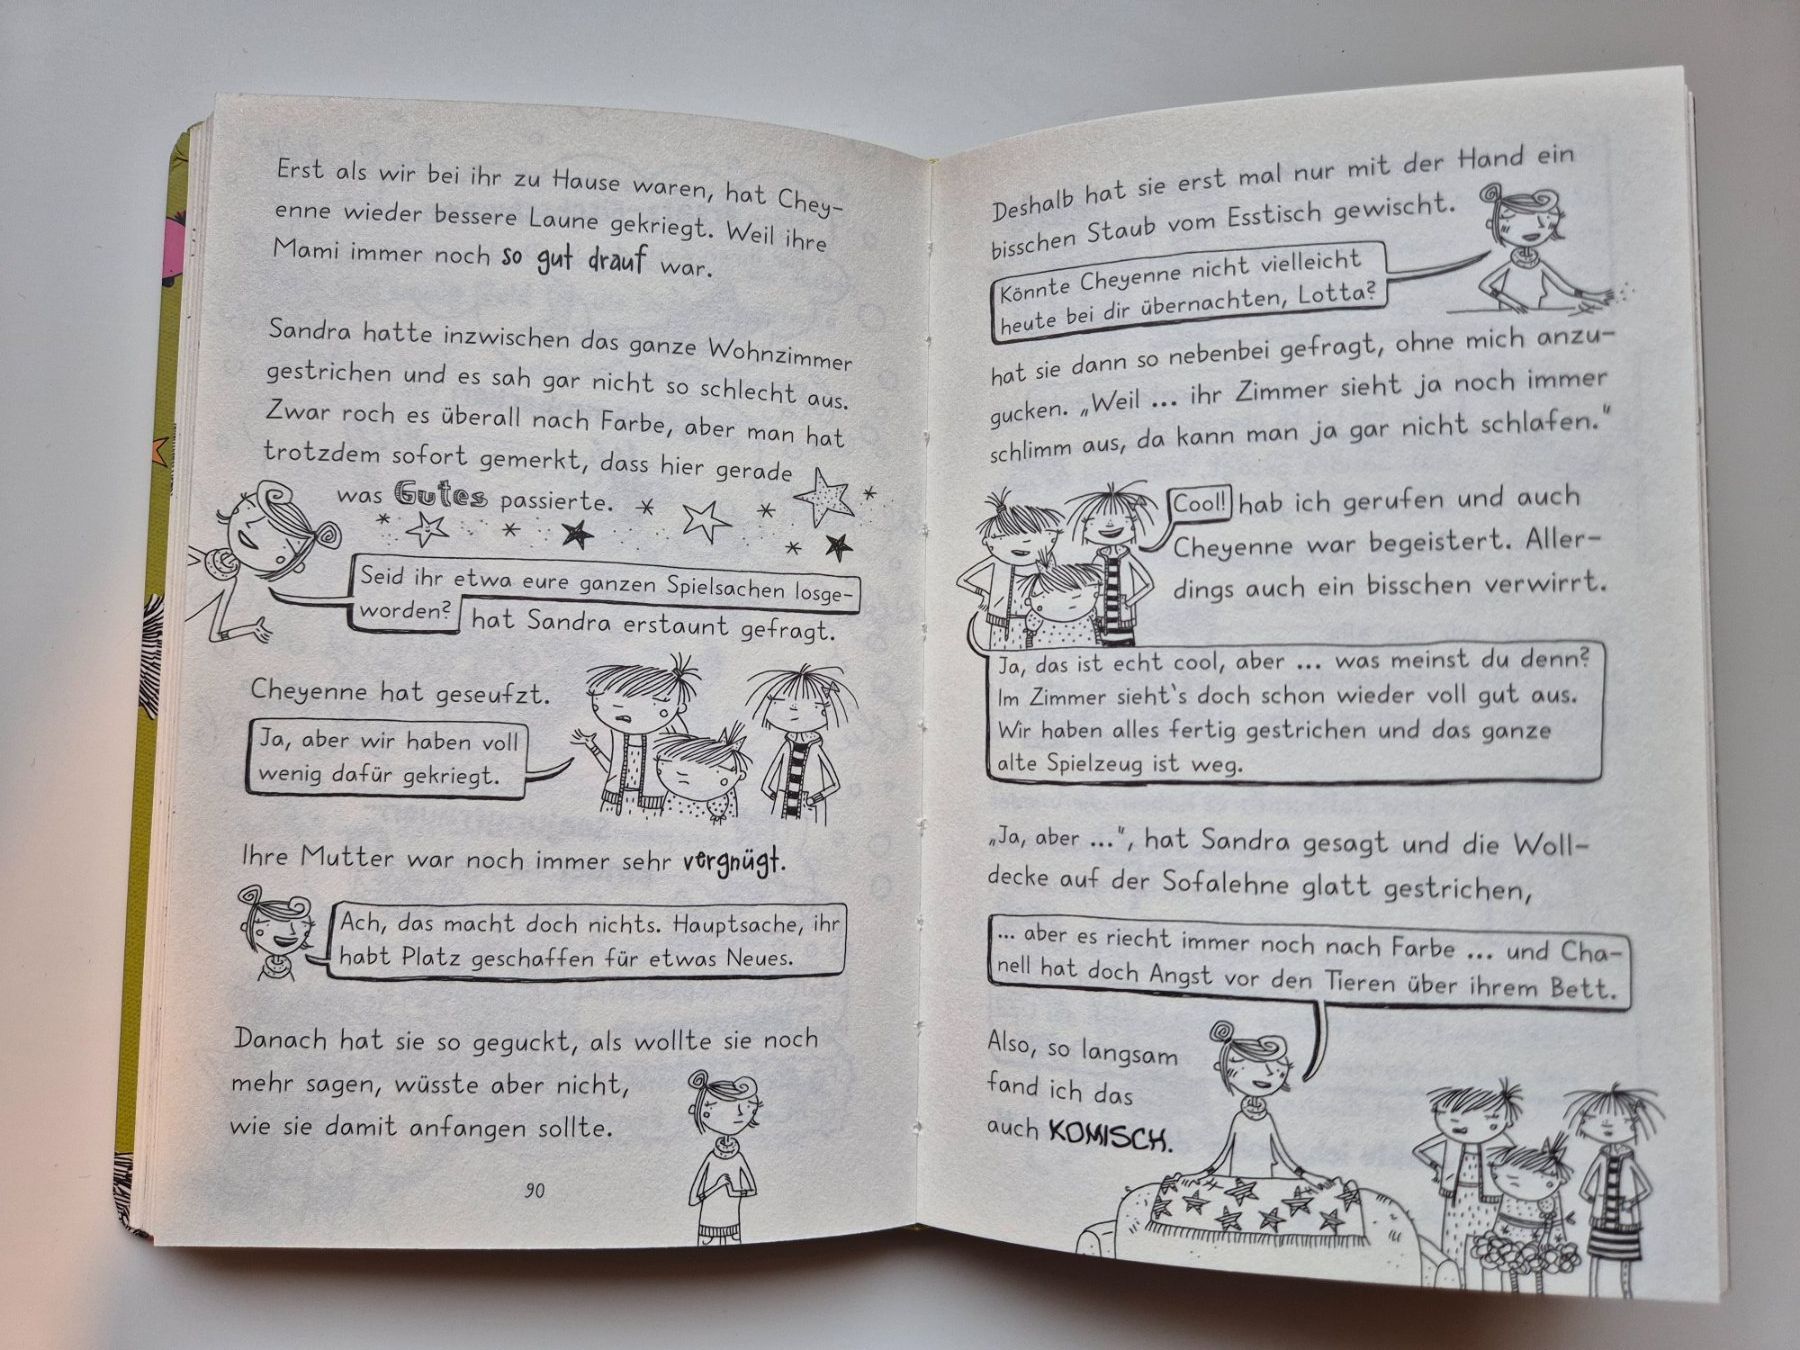 Erst als wir bei ihr zu Hause waren, hat Chey-
enne wieder bessere Laune gekriegt. Weil ihre
Mami immer noch so gut drauf war.
Sandra hatte inzwischen das ganze Wohnzimmer
gestrichen und es sah gar nicht so schlecht aus.
Zwar roch es überall nach Farbe, aber man hat
trotzdem sofort gemerkt, dass hier gerade
was Gutes passierte.
Seid ihr etwa eure ganzen Spielsachen losge-
worden? hat Sandra erstaunt gefragt.
Cheyenne hat geseufzt.
Ja, aber wir haben voll
wenig dafür gekriegt.
Ihre Mutter war noch immer sehr vergnügt.
Ach, das macht doch nichts. Hauptsache, ihr
habt Platz geschaffen für etwas Neues.
Danach hat sie so geguckt, als wollte sie noch
mehr sagen, wüsste aber nicht,
wie sie damit anfangen sollte.
90
Deshalb hat sie erst mal nur mit der Hand ein
bisschen Staub vom Esstisch gewischt.
Könnte Cheyenne nicht vielleicht
heute bei dir übernachten, Lotta?
hat sie dann so nebenbei gefragt, ohne mich anzu-
gucken. „Weil ... ihr Zimmer sieht ja noch immer
schlimm aus, da kann man ja gar nicht schlafen.“
Cool! hab ich gerufen und auch
Cheyenne war begeistert. Aller-
dings auch ein bisschen verwirrt.
Ja, das ist echt cool, aber ... was meinst du denn?
Im Zimmer sieht's doch schon wieder voll gut aus.
Wir haben alles fertig gestrichen und das ganze
alte Spielzeug ist weg.
„Ja, aber ...“, hat Sandra gesagt und die Woll-
decke auf der Sofalehne glatt gestrichen,
... aber es riecht immer noch nach Farbe ... und Cha-
nell hat doch Angst vor den Tieren über ihrem Bett.
Also, so langsam
fand ich das
auch KOMISCH.